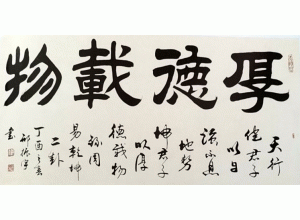 厚德載物
天行
健君子
以自
強不息
地勢
坤君子
以厚
德載物
周
易乾坤
二卦
丁酉
書